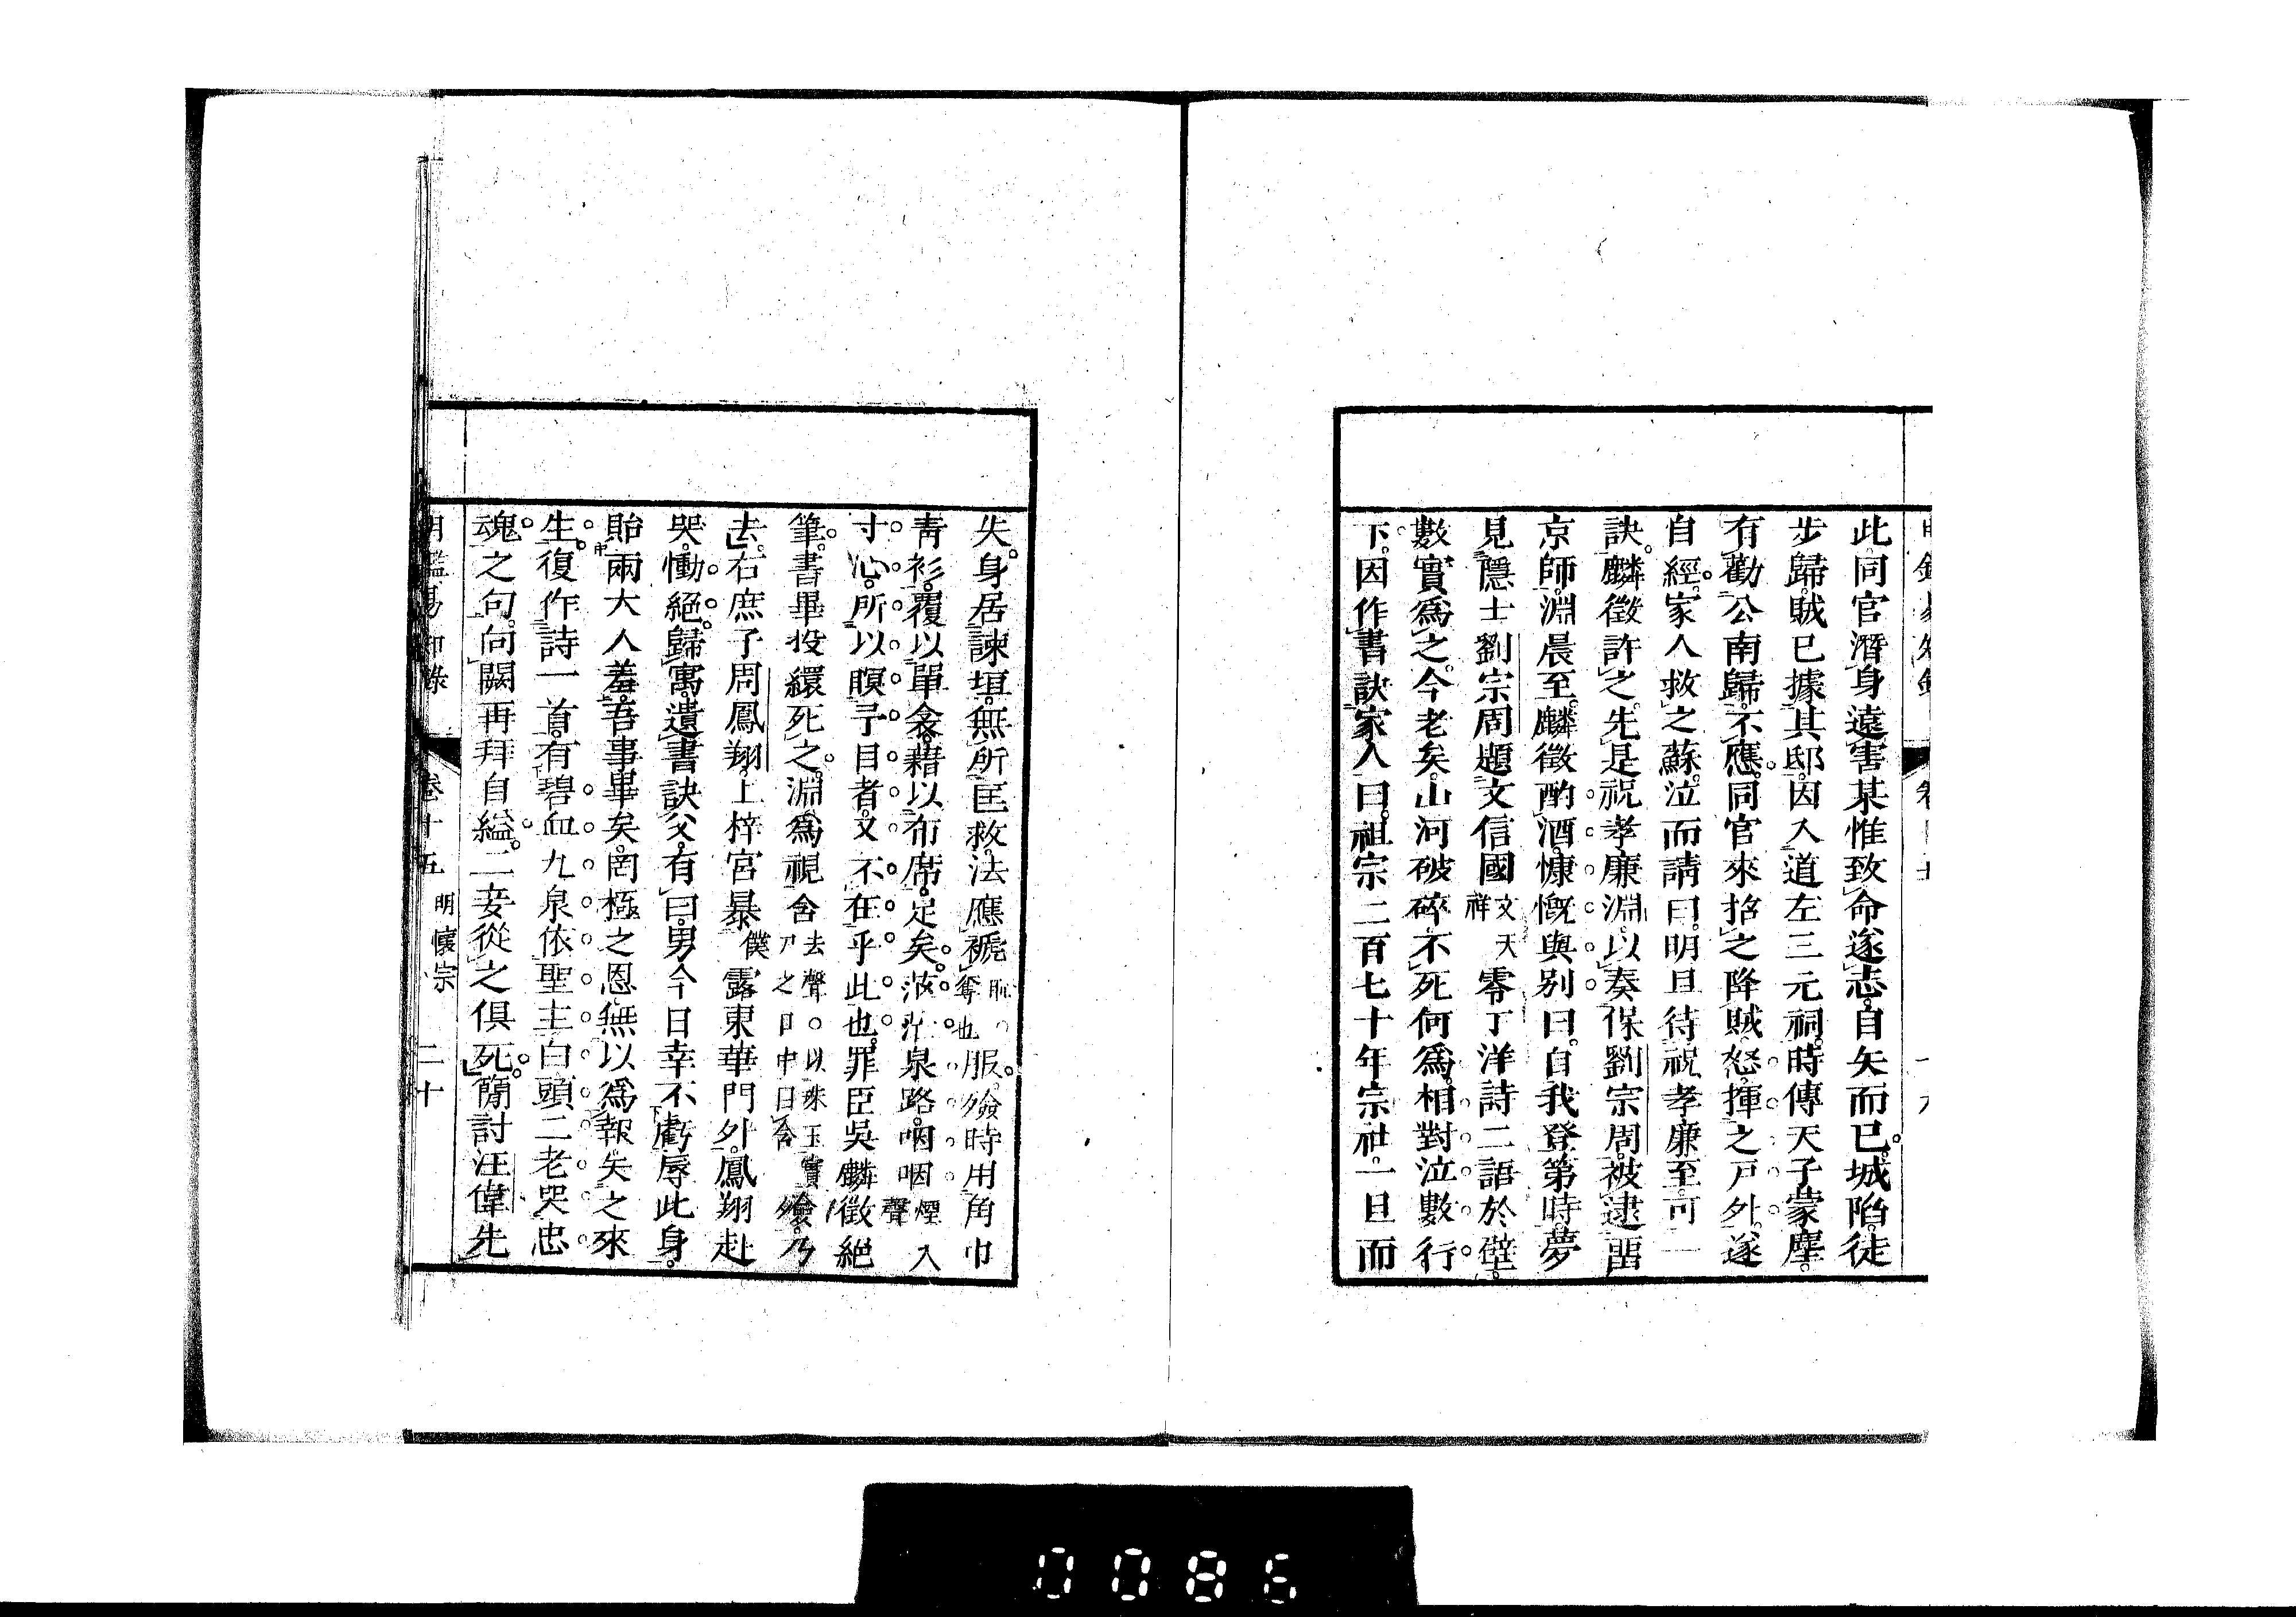 此同官潛身遠害某惟致命遂志自矢而已城陷徒
步歸賊已據其邸因入道左三元祠時傳天子蒙塵
有勸公南歸不應同官來招之降賊怒揮之戸外遂
自經家人救之蘇泣而請曰明旦待祝孝廉至可一
訣麟徵許之先是祝孝廉淵以奏保劉宗周被逮畱
京師淵晨至麟徵酌酒慷慨與别曰自我登第時夢
見隱士劉宗周題文信國文天祥零丁洋詩二語於壁
數實爲之今老矣山河破碎不死何爲相對泣數行
下因作書訣家人曰祖宗二百七十年宗社一旦而
失身居諫垣無所匡救法應褫奪也服殮時用角巾
青衫覆以單衾藉以布席足矣茫茫泉路咽咽煙入聲
寸心所以瞑予目者又不在乎此也罪臣吳麟徵絕
筆書畢投繯死之淵爲視含去聲○以珠玉實尸之口中曰含殮乃
去右庶子周鳳翔上梓宮暴僕露東華門外鳳翔赴
哭慟絕歸寓遺書訣父有曰男今日幸不虧辱此身
貽兩大人羞吾事畢矣罔極之恩無以爲報矢之來
生復作詩一首有碧血九泉依聖主白頭二老哭忠
魂之句向闕再拜自縊二妾從之俱死簡討汪偉先
明鑑易知錄 卷十五 明懷宗 二十
0086